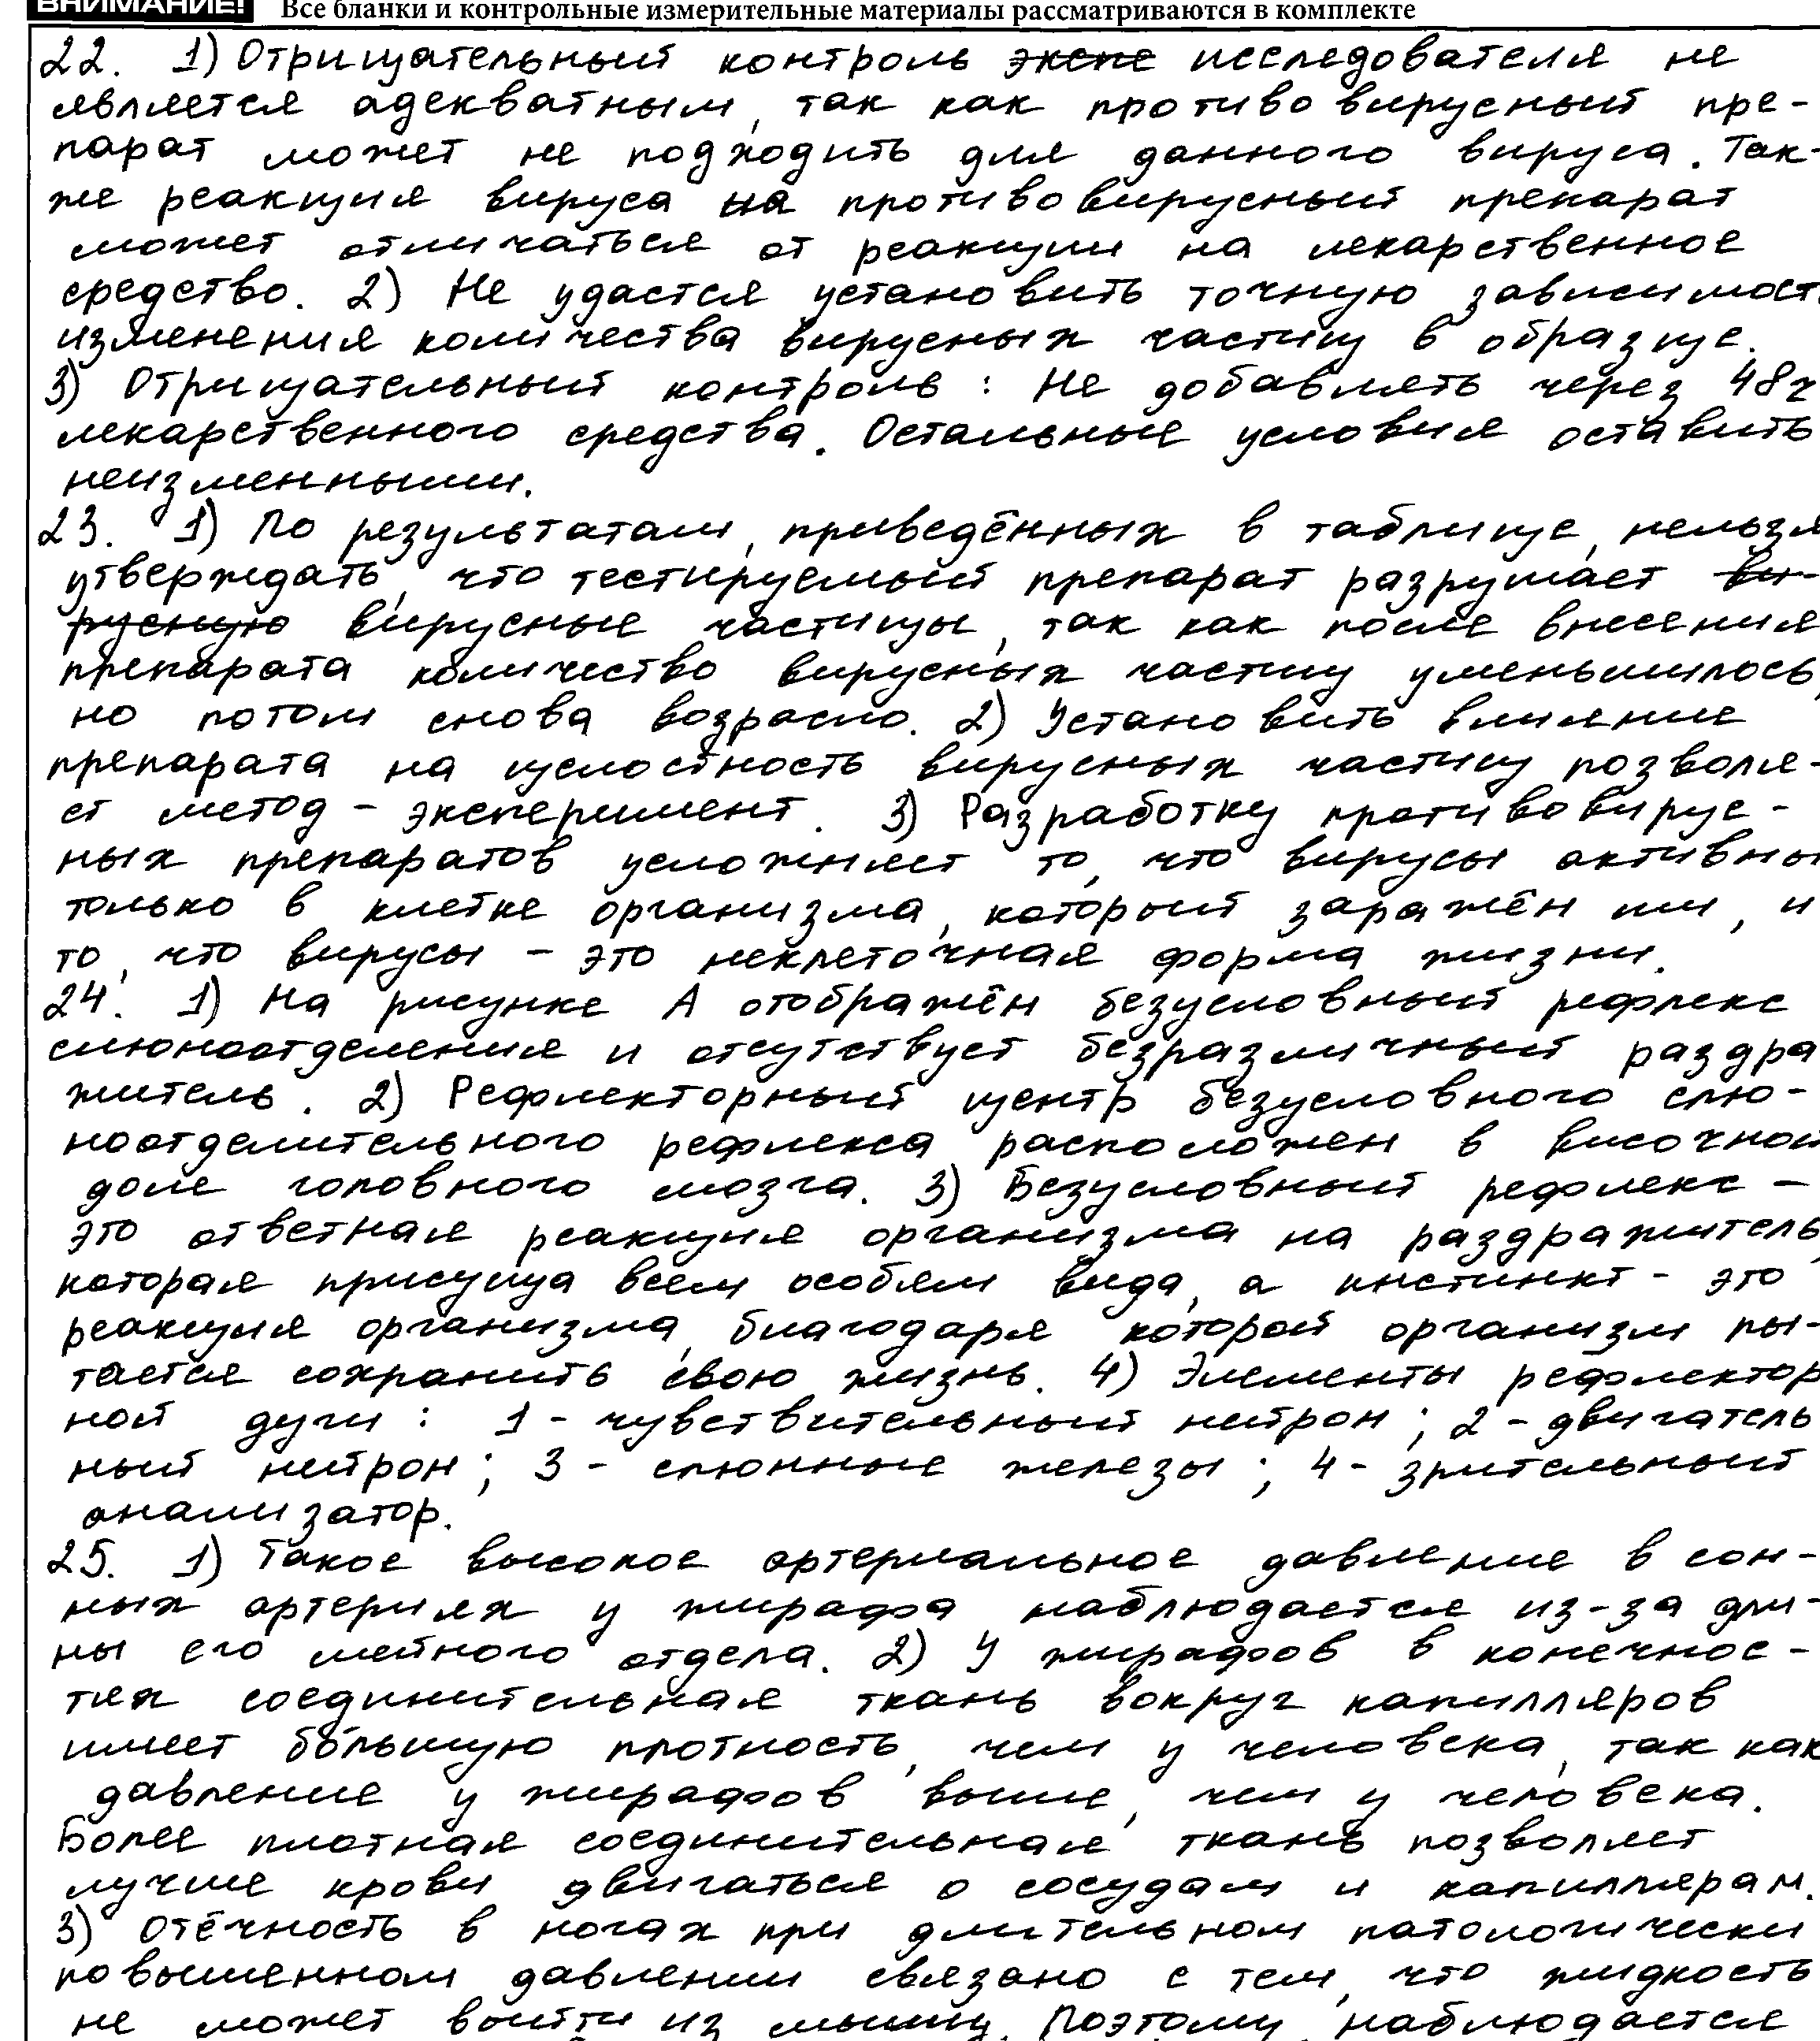 ВНИМАНИЕ! Все бланки и контрольные измерительные материалы рассматриваются в комплекте
22. 1) Отрицательный контроль экспе исследователя не
является адекватным, так как противовирусный пре-
парат может не подходить для данного вируса. Так-
же реакция вируса на противовирусный препарат
может отличаться от реакции на лекарственное
средство. 2) Не удастся установить точную зависимост
изменения количества вирусных частиц в образце.
3) Отрицательный контроль: Не добавлять через 48ч
лекарственного средства. Остальные условия оставить
неизменными.
23. 1) По результатам, приведённых в таблице, нельзя
утверждать, что тестируемый препарат разрушает ви-
русную вирусные частицы, так как после внесения
препарата количество вирусных частиц уменьшилось,
но потом снова возрасло. 2) Установить влияние
препарата на целостность вирусных частиц позволя-
ет метод - эксперимент. 3) Разработку противовирус-
ных препаратов усложняет то, что вирусы активны
только в клетке организма, который заражён им, и
то, что вирусы - это неклеточная форма жизни.
24. 1) На рисунке А отображён безусловный рефлекс
слюноотделения и отсутствует безразличный раздра
житель. 2) Рефлекторный центр безусловного слю-
ноотделительного рефлекса расположен в височной
доле головного мозга. 3) Безусловный рефлекс -
это ответная реакция организма на раздражитель,
которая присуща всем особям вида, а инстинкт - это
реакция организма, благодаря которой организм пы-
тается сохранить свою жизнь. 4) Элементы рефлектор
ной дуги: 1 - чувствительный нейрон; 2 - двигатель
ный нейрон; 3 - слюнные железы; 4 - зрительный
анализатор.
25. 1) Такое высокое артериальное давление в сон-
ных артериях у жирафа наблюдается из-за дли-
ны его шейного отдела. 2) У жирафов в конечнос-
тях соединительная ткань вокруг капилляров
имеет бо́льшую плотность, чем у человека, так как
давление у жирафов выше, чем у человека.
Более плотная соединительная ткань позволяет
лучше крови двигаться о сосудам и капиллярам.
3) Отёчность в ногах при длительном патологически
повышенном давлении связано с тем, что жидкость
не может выйти из мышц. Поэтому наблюдается